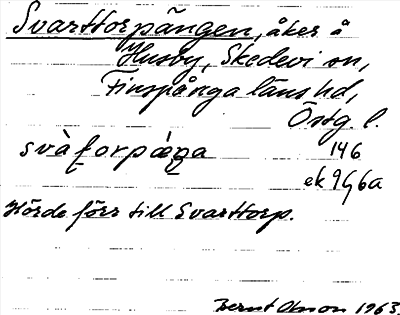 Svarttorpängen, åker å
Husby, Skedevi sn,
Finspånga läns hd,
Östg. l.
svàforpæ̀ŋa 146
ek 9G6a
Hörde förr till Svarttorp.
Bernt Olson 1963.